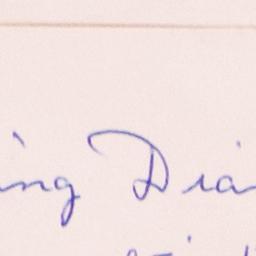 ing Dia